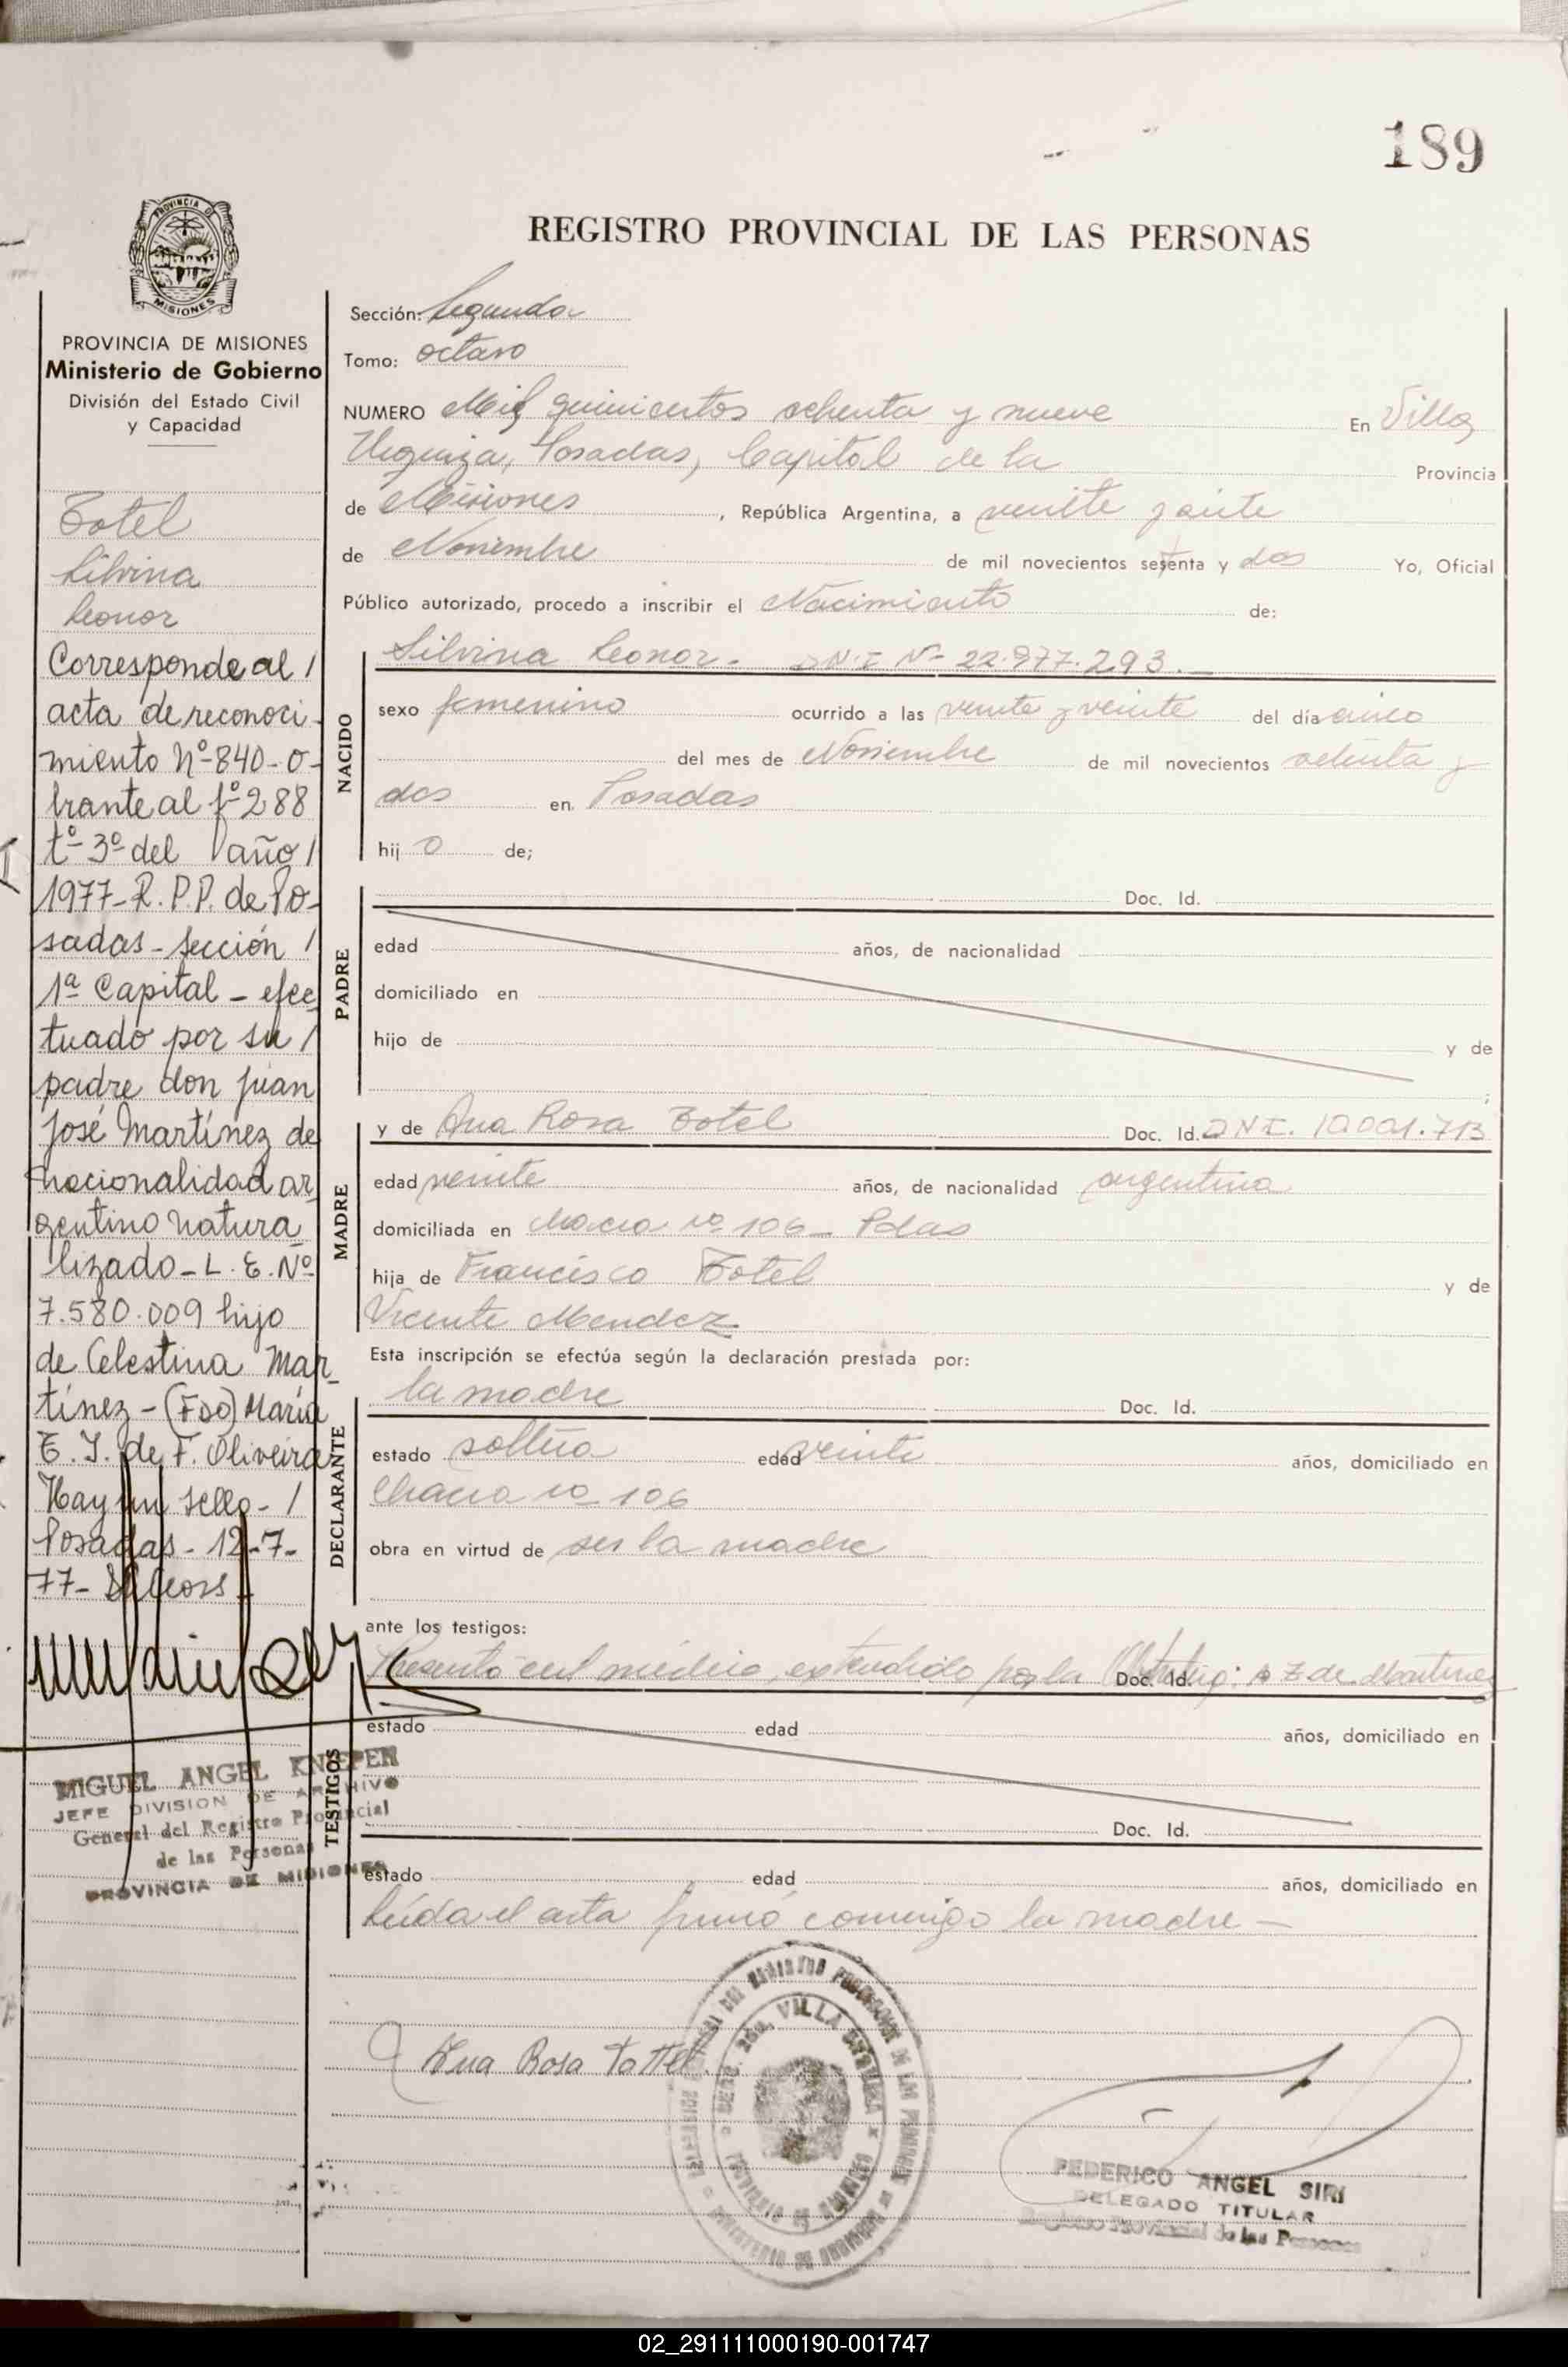 189
REGISTRO PROVINCIAL DE LAS PERSONAS
PROVINCIA DE MISIONES
Ministerio de Gobierno
División del Estado Civil
y Capacidad
Totel
Silvina
Leonor
Corresponde al /
acta de reconoci-
miento Nº 840-o-
brante al fº 288
tº 3º del año /
1977-R.P.P. de Po-
sadas-sección /
1ª Capital - efec
tuado por su /
padre don Juan
José Martínez de
nacionalidad ar
gentino natura
lizado - L.E. Nº
7.580.009 hijo
de Celestina Mar-
tínez - (Fdo) María
E. J. de F. Oliveira
Hay un sello - /
Posadas - 12-7-
77-
MIGUEL ANGEL KNEPER
JEFE DIVISION DE ARCHIVO
General del Registro Provincial
de las Personas
PROVINCIA DE MISIONES
Sección: Segunda
Tomo: octavo
NUMERO Mil quinientos ochenta y nueve En Villa
Urquiza, Posadas, Capital de la Provincia
de Misiones, República Argentina, a veinte y siete
de Noviembre de mil novecientos setenta y dos Yo, Oficial
Público autorizado, procedo a inscribir el Nacimiento de:
NACIDO
Silvina Leonor. D.N.I Nº 22.977.293.
sexo femenino ocurrido a las veinte y veinte del día cinco
del mes de Noviembre de mil novecientos setenta y
dos en Posadas
hij o de;
PADRE
Doc. Id.
edad años, de nacionalidad
domiciliado en
hijo de y de
;
MADRE
y de Ana Rosa Totel Doc. Id. DNI. 10.001.713
edad veinte años, de nacionalidad argentina
domiciliada en chacra nº 106 - Pdas
hija de Francisco Totel y de
Vicente Mendez
Esta inscripción se efectúa según la declaración prestada por:
DECLARANTE
la madre Doc. Id.
estado soltera edad veinte años, domiciliado en
Chacra nº 106
obra en virtud de ser la madre
ante los testigos:
TESTIGOS
Presentó cert médico, extendido por la Doc. Id. Z de Martinez
estado edad años, domiciliado en
Doc. Id.
estado edad años, domiciliado en
Leída el acta firmó conmigo la madre -
Ana Rosa Tottel
VILLA URQUIZA
FEDERICO ANGEL SIRI
DELEGADO TITULAR
Registro Provincial de las Personas
02_291111000190-001747